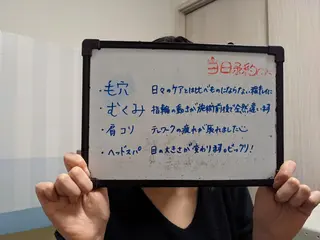 当日予約
・毛穴 日々のケアとは比べものにならない
・むくみ 指輪の動きが施術前後で全然違います
・肩コリ テレワークの疲れが取れました
・ヘッドスパ 目の大きさが変わります。ビックリ!